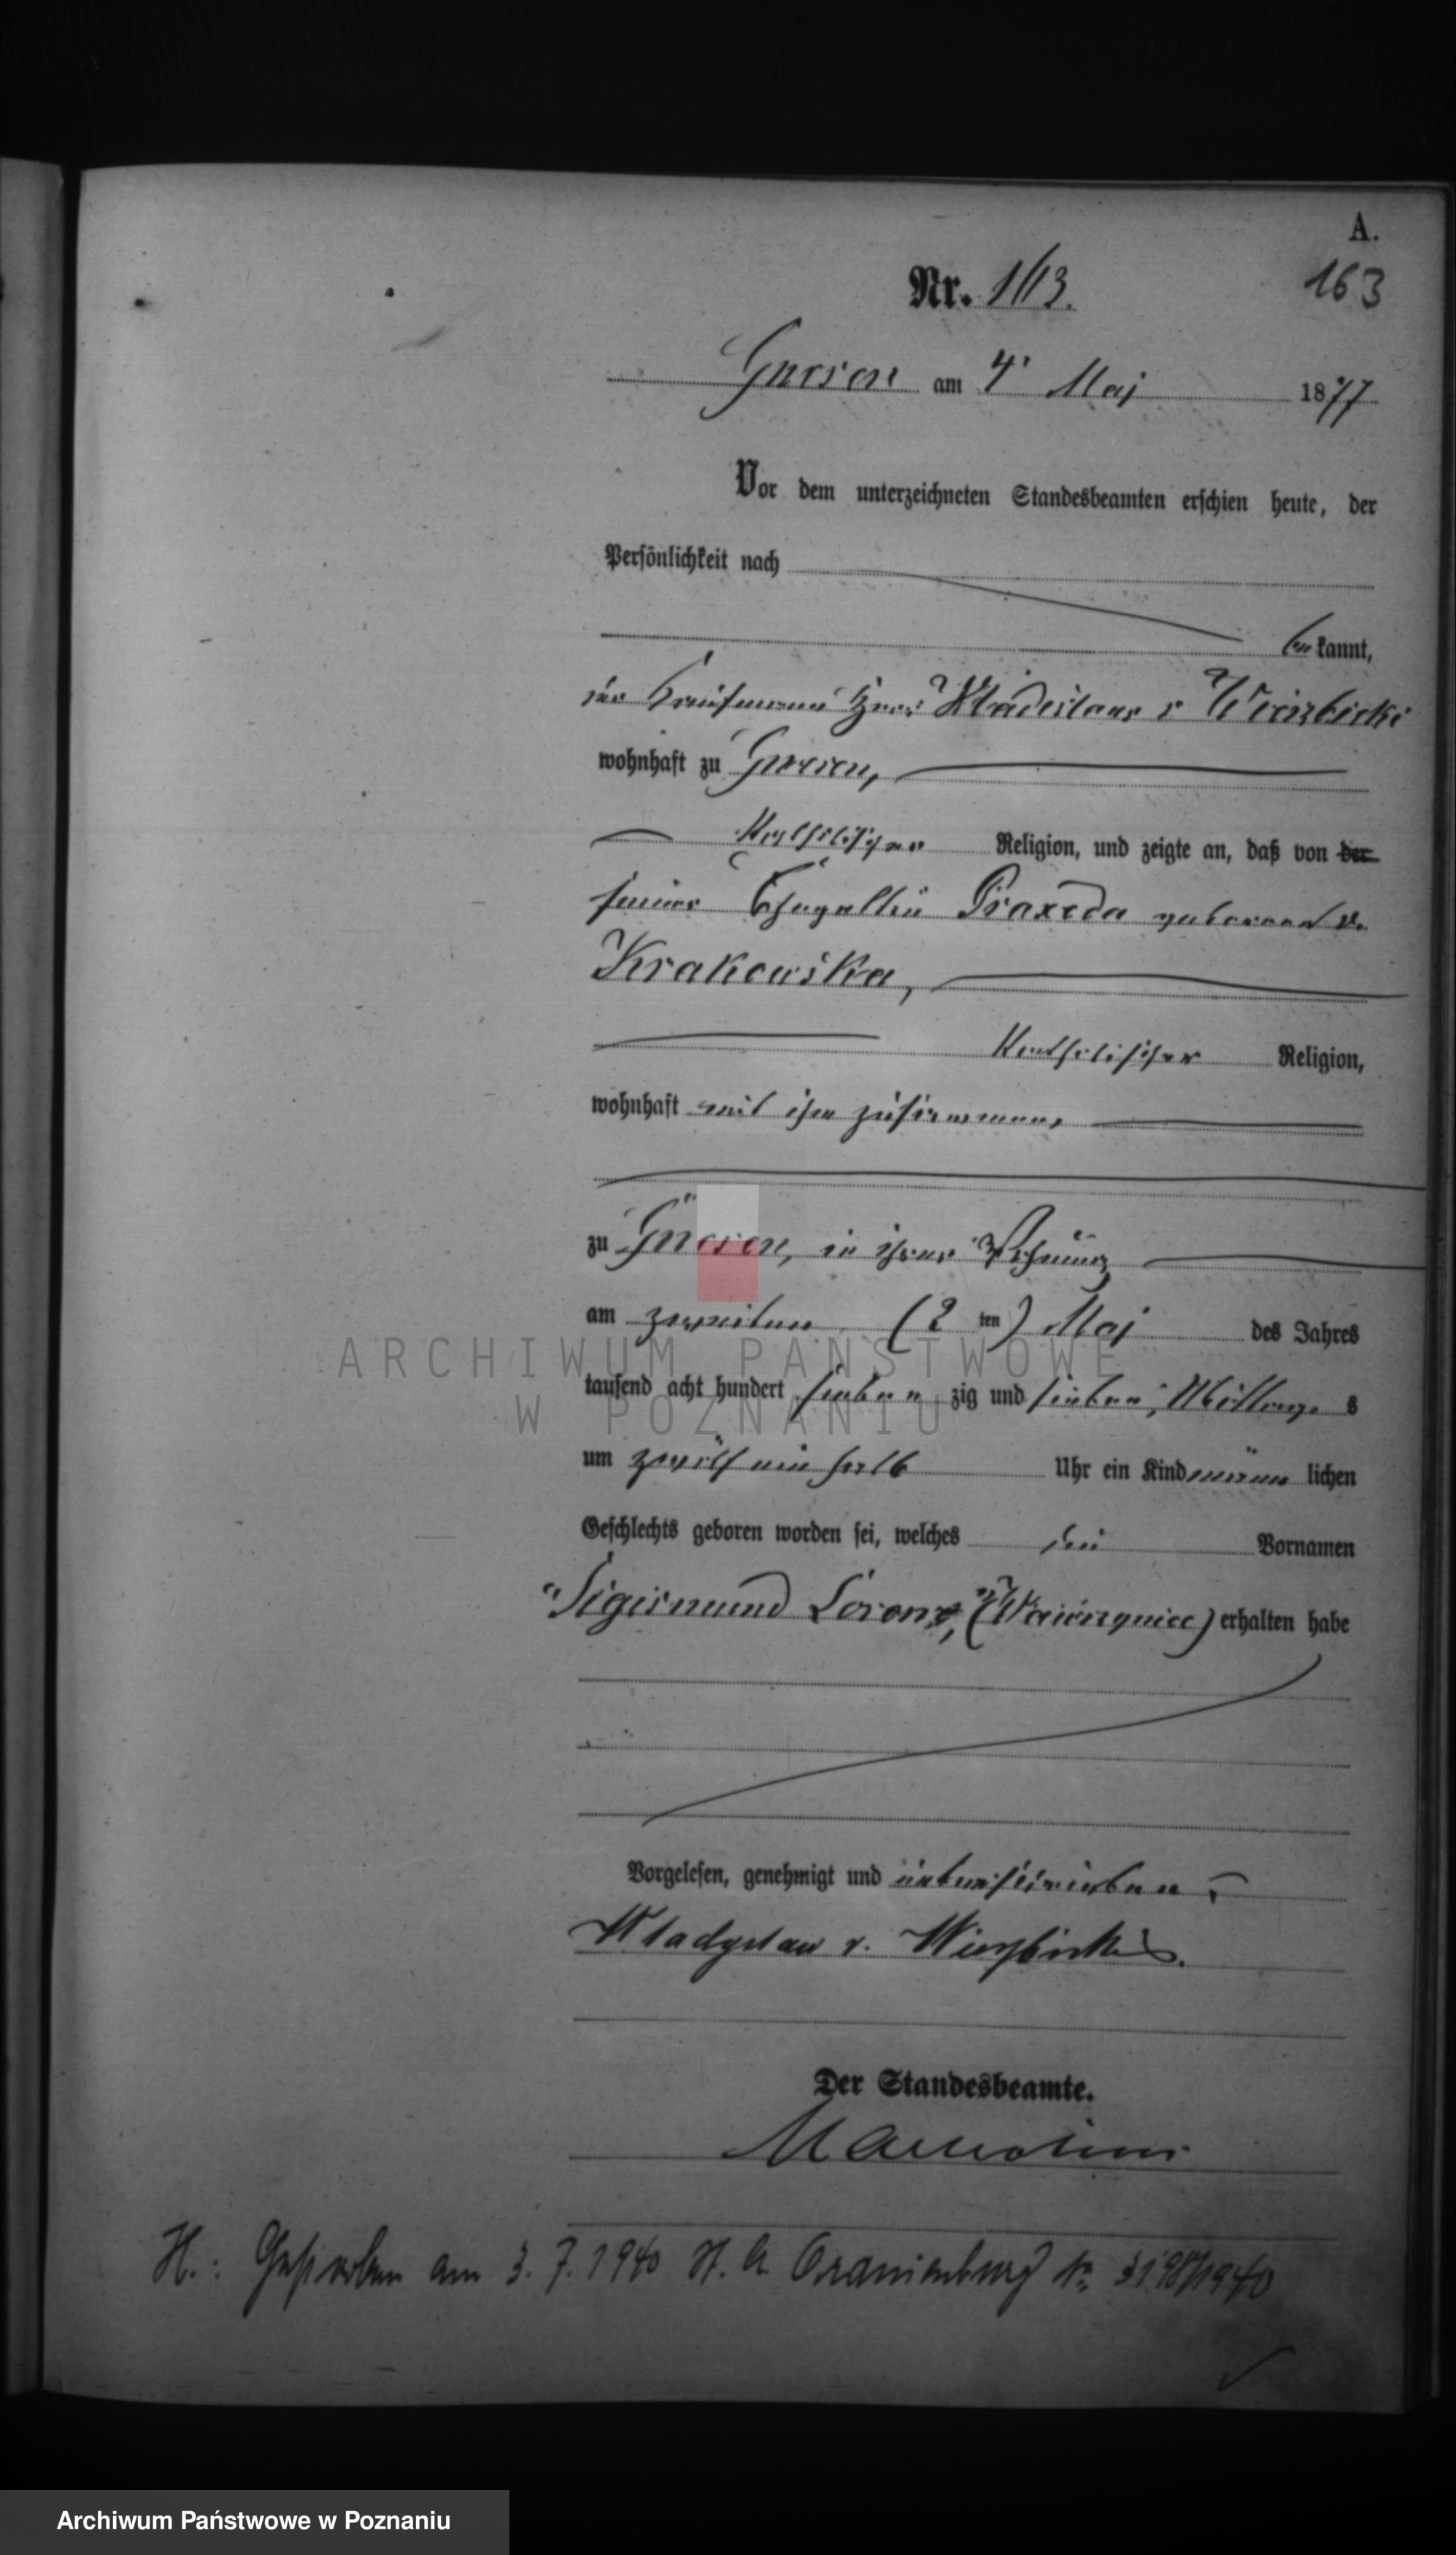 A.
Nr. 163.
163
Gnesen am 4. Maj 1877
Vor dem unterzeichneten Standesbeamten erschien heute, der
Persönlichkeit nach
bekannt,
der Kaufmann Herr Wladislaus v Wierzbicki
wohnhaft zu Gnesen,
katholischer Religion, und zeigte an, daß von der
seiner Ehegattin Praxeda geborene v.
Krakowska,
katholischer Religion,
wohnhaft mit ihm zusammen,
zu Gnesen, in ihrer Wohnung
am zweiten (2 ten) Maj des Jahres
tausend acht hundert sieben zig und sieben, Mittags
um zwölf ein halb Uhr ein Kind männ lichen
Geschlechts geboren worden sei, welches die Vornamen
Sigismund Lorenz, (Wawrzyniec) erhalten habe
Vorgelesen, genehmigt und unterschrieben
Wladysław v. Wierzbicki.
Der Standesbeamte.
H.: Gestorben am 3. 7. 1940 St. A. Oranienburg Nr. 3198/1940
ARCHIWUM PAŃSTWOWE
W POZNANIU
Archiwum Państwowe w Poznaniu